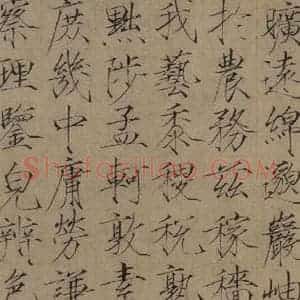 曠遠綿邈巖岫
於農務茲稼穡
我藝黍稷稅熟
黜陟孟軻敦素
庶幾中庸勞謙
察理鑒皃辨色